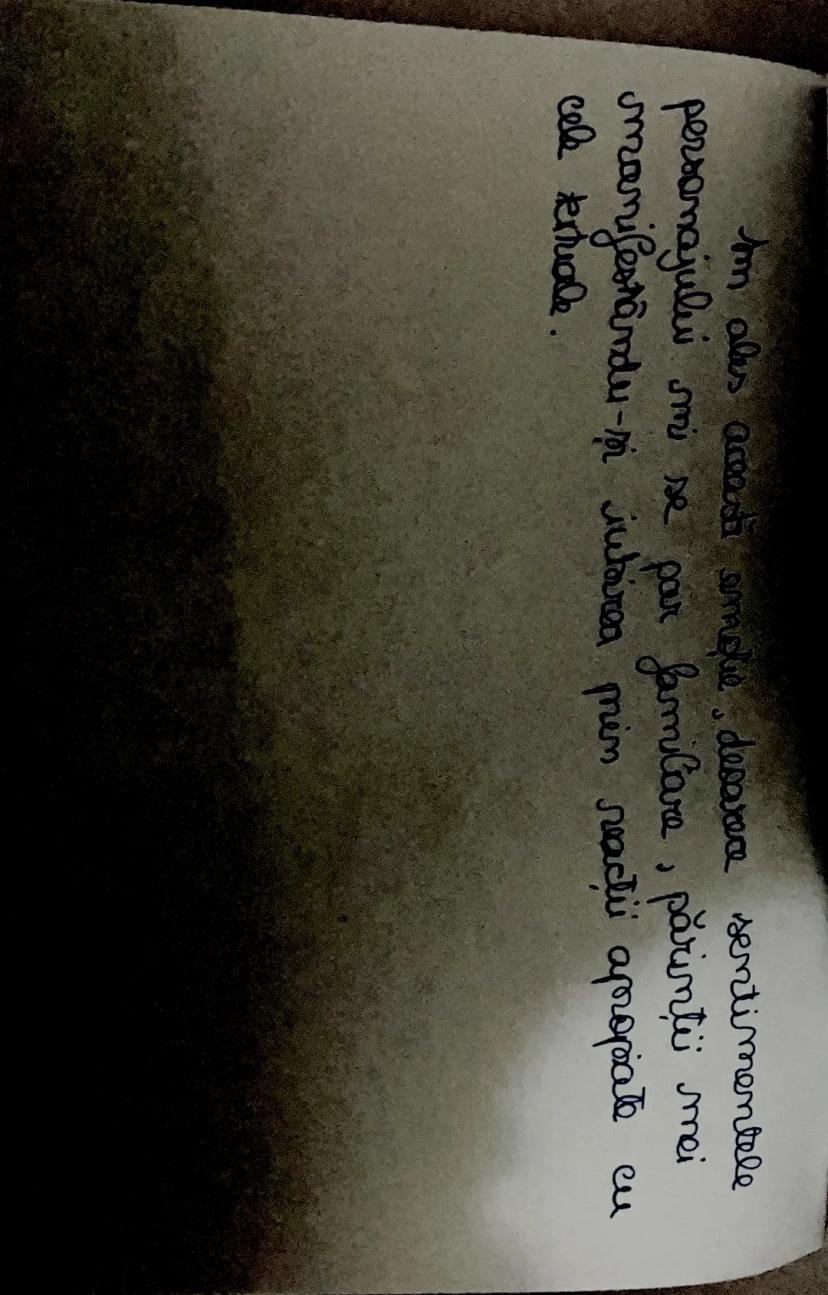 Am ales această emoție, deoarece sentimentele
personajului mi se par familiare, părinții mei
manifestându-și iubirea prin reacții apropiate cu
cele textuale.